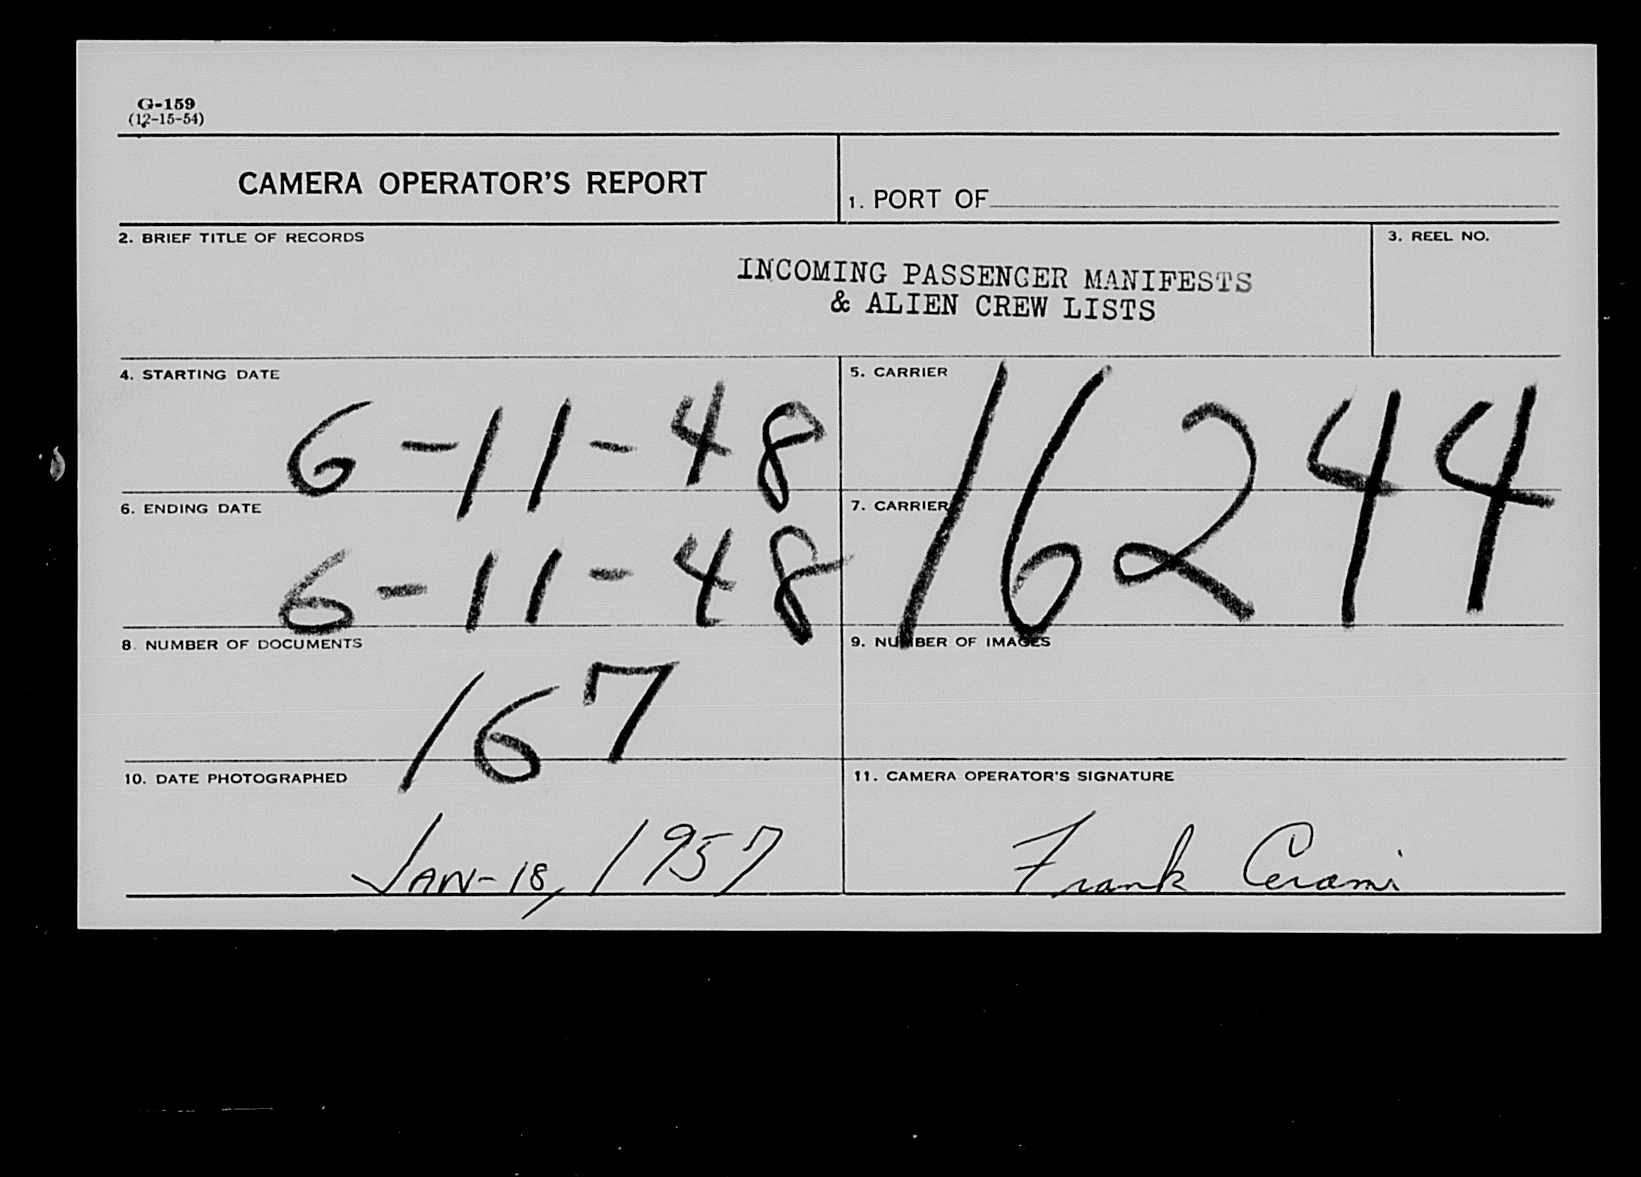 G-159
(12-15-54)
CAMERA OPERATOR'S REPORT
1. PORT OF
2. BRIEF TITLE OF RECORDS
INCOMING PASSENGER MANIFESTS
& ALIEN CREW LISTS
3. REEL NO.
4. STARTING DATE
6-11-48
5. CARRIER
16244
6. ENDING DATE
6-11-48
7. CARRIER
8. NUMBER OF DOCUMENTS
167
9. NUMBER OF IMAGES
10. DATE PHOTOGRAPHED
JAN-18, 1957
11. CAMERA OPERATOR'S SIGNATURE
Frank Cerami